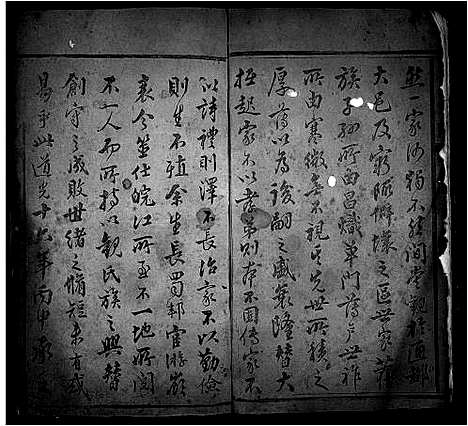 一家內蹈不經間嘗觀於通都
大邑及窮陬僻壤之區世家著
族子孫所由昌熾單門薄戶世祚
所由寒微無不視其先世所積之
厚薄以為後嗣之盛衰隆替大
抵起家不以孝弟則本不固傳家不
以詩禮則澤不長治家不以勤儉
則生不殖余生長蜀邦宦游嶺
表今筮仕皖江所至不一地所閱
不一人而所持以觀氏族之興替
創守之成敗世緒之脩短未有或
易乎此道光十六年丙申